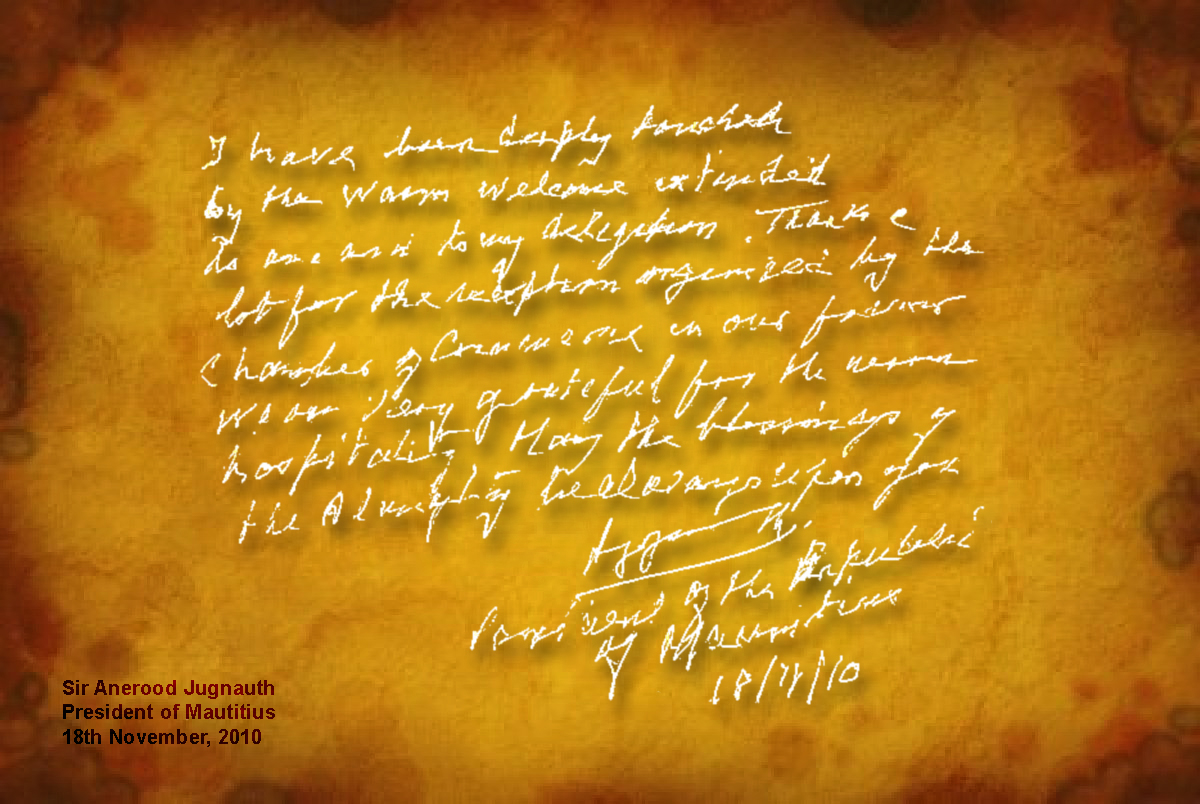 I have been deeply touched
by the warm welcome extended
to me and to my delegation. Thanks a
lot for the reception organized by the
Chamber of Commerce in our favour
We are very grateful for the warm
hospitality. May the blessings of
the Almighty be always upon you
President of the Republic
of Mauritius
18/11/10
Sir Anerood Jugnauth
President of Mautitius
18th November, 2010